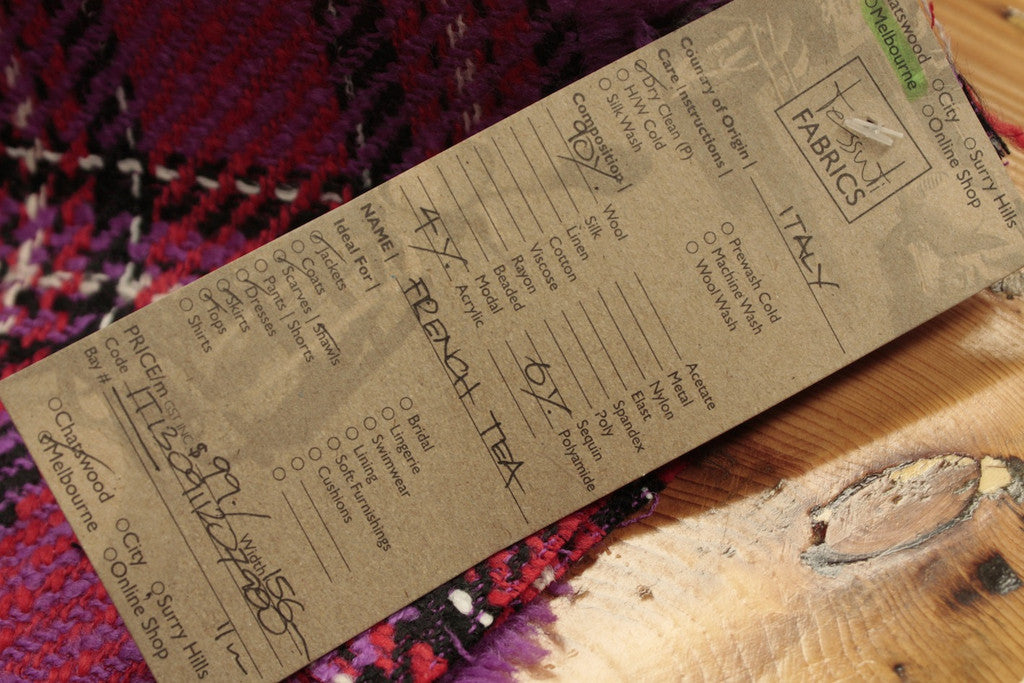 Chatswood
Melbourne
City
Online Shop
Surry Hills
Tessuti
FABRICS
Country of Origin | ITALY
Care Instructions |
Dry Clean (P)
H/W Cold
Silk Wash
Prewash Cold
Machine Wash
Wool Wash
Composition |
90%. Wool
Silk
Linen
Cotton
Viscose
Rayon
Beaded
Modal
4%. Acrylic
Acetate
Metal
Nylon
Elast
Spandex
Poly
Sequin
6%. Polyamide
NAME | FRENCH TEA
Ideal For |
Jackets
Coats
Scarves | Shawls
Pants | Shorts
Dresses
Skirts
Tops
Shirts
Bridal
Lingerie
Swimwear
Lining
Soft Furnishings
Cushions
PRICE/m GST INC $ 99./ Width 156
Code
Bay #
Chatswood
Melbourne
City
Online Shop
Surry Hills